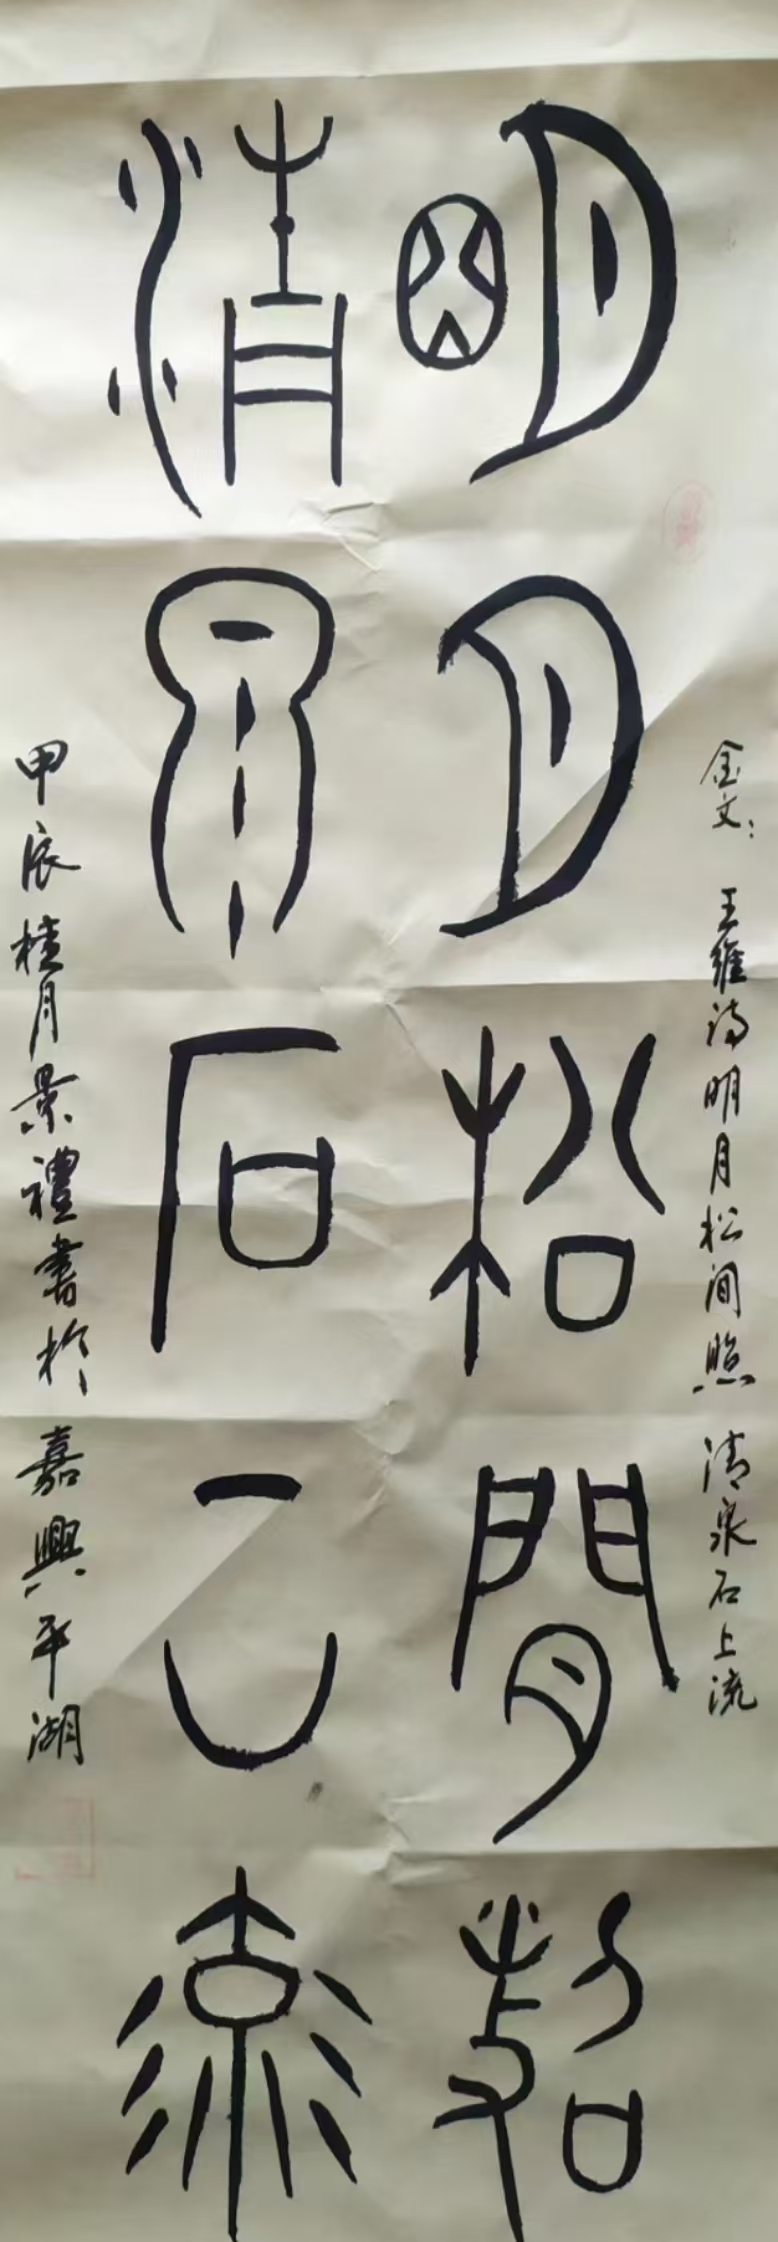 金文：王維诗明月松间照 清泉石上流
明月松間照
清泉石上流
甲辰桂月景禮書於嘉興平湖